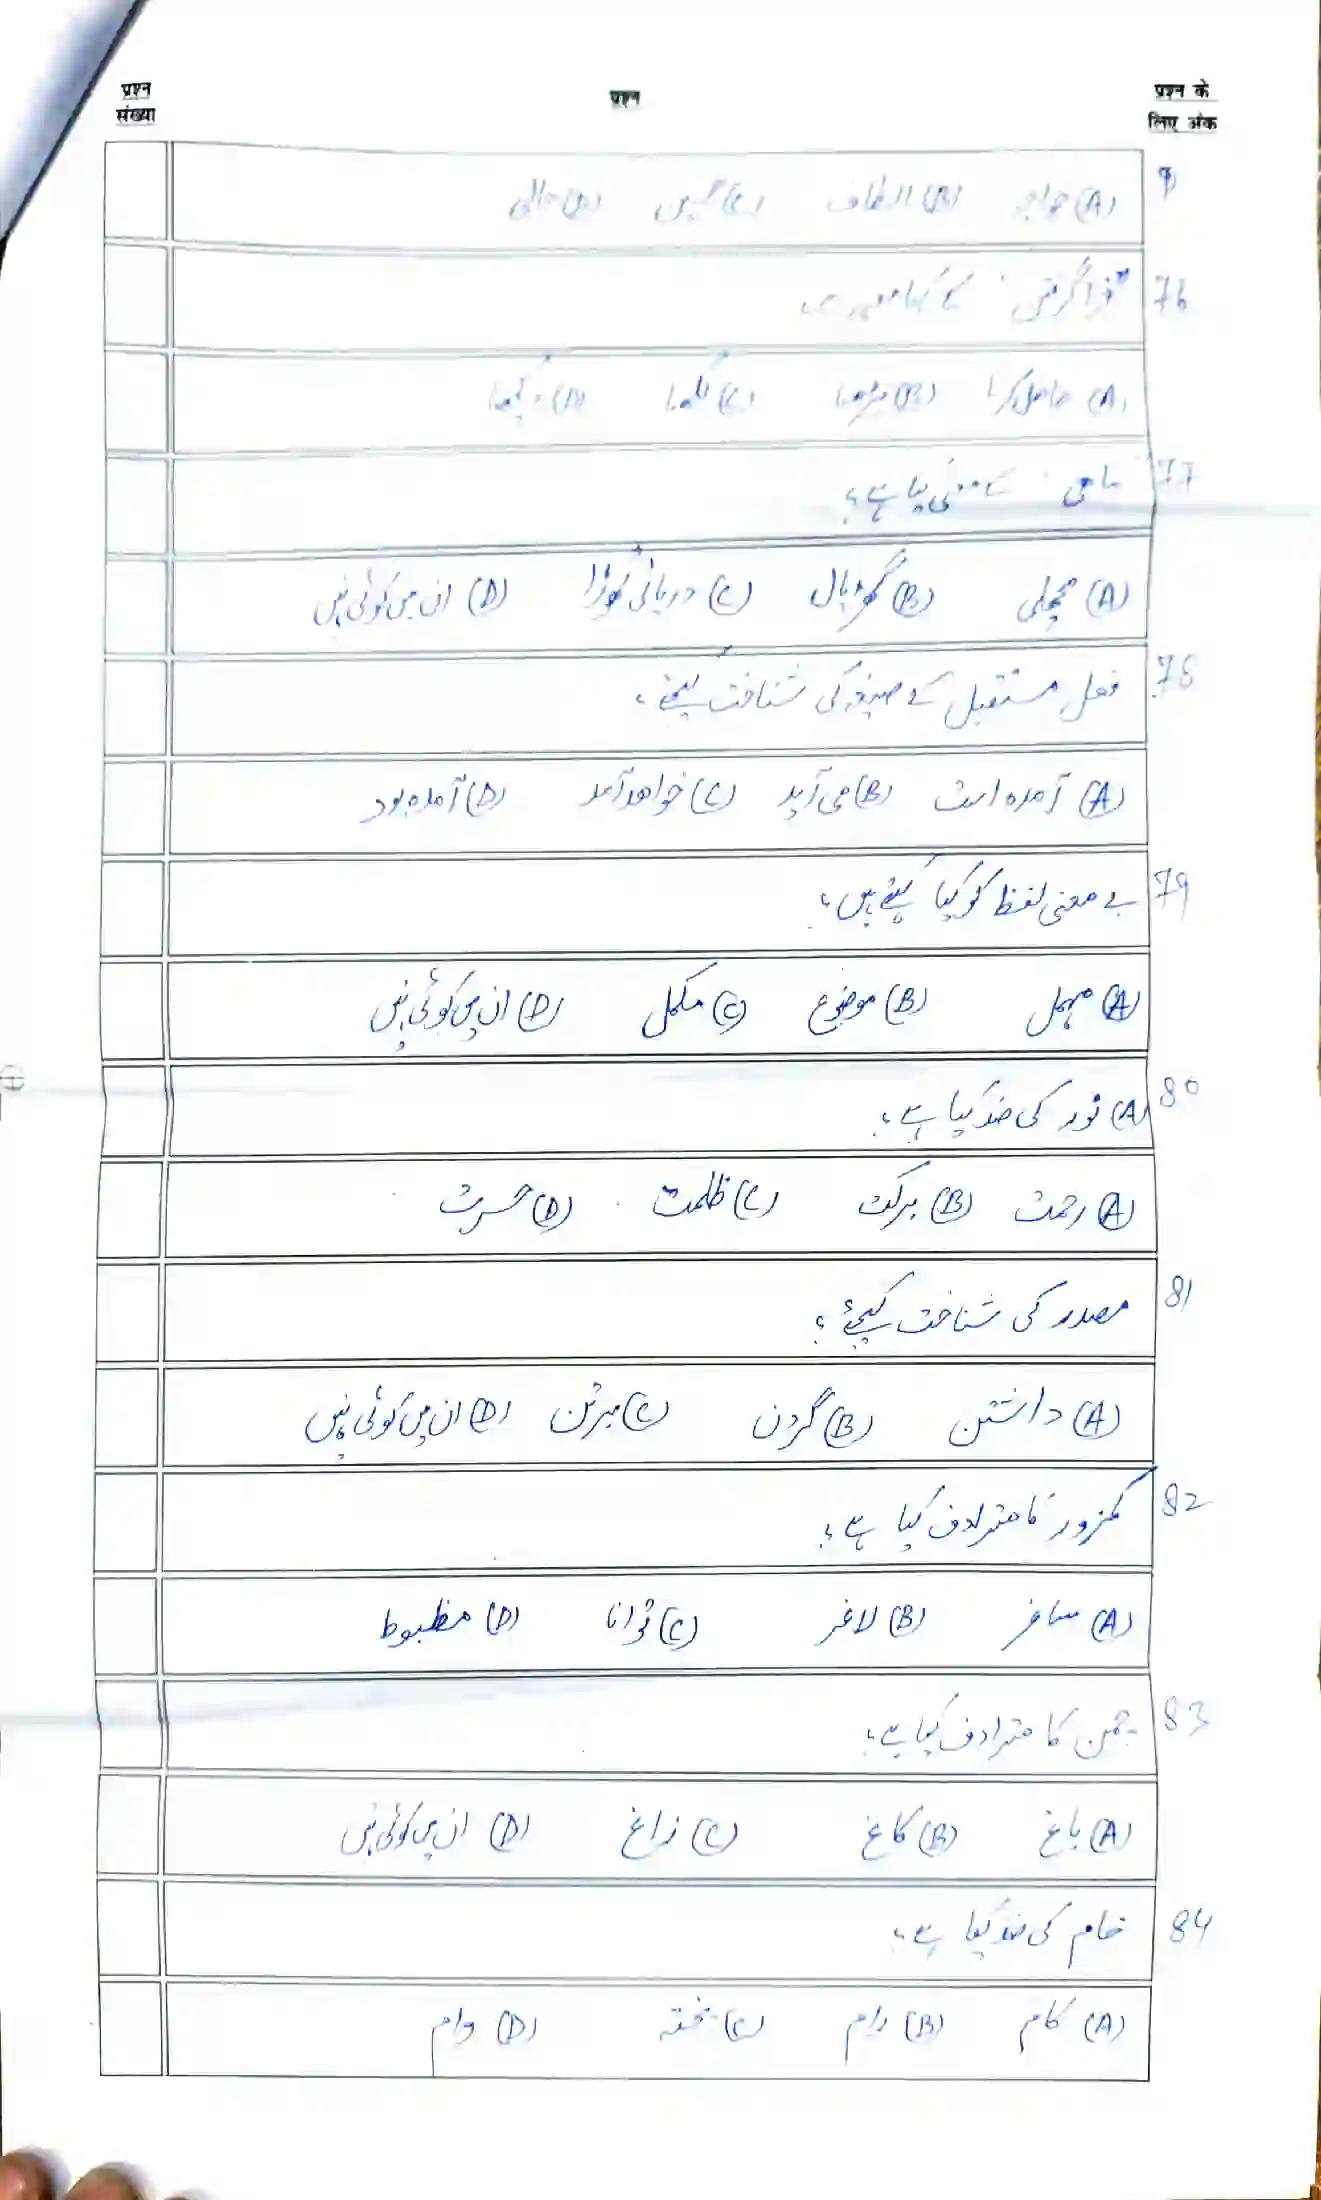 प्रश्न संख्या
प्रश्न
प्रश्न के लिए अंक
(A) خواجہ (B) الطاف (C) حسین (D) حالی
76 "فراگرفتن" کے کیا معنی
(A) حاصل کرنا (B) پڑھنا (C) لکھنا (D) دیکھنا
77 ماہی کے معنی کیا ہے؟
(A) مچھلی (B) گھڑیال (C) دریائی گھوڑا (D) ان میں کوئی نہیں
78 فعل مستقبل کے صیغہ کی شناخت کیجئے؟
(A) آمدہ است (B) می آید (C) خواهد آمد (D) آمدہ بود
79 بے معنی لفظ کو کیا کہتے ہیں؟
(A) مہمل (B) موضوع (C) مکمل (D) ان میں کوئی نہیں
80 (A) نور کی ضد کیا ہے؟
(A) رحمت (B) برکت (C) ظلمت (D) حسرت
81 مصدر کی شناخت کیجئے؟
(A) داشتن (B) گردن (C) برتن (D) ان میں کوئی نہیں
82 کمزور کا مترادف کیا ہے؟
(A) ساغر (B) لاغر (C) توانا (D) مظبوط
83 چمن کا مترادف کیا ہے؟
(A) باغ (B) کاغ (C) زاغ (D) ان میں کوئی نہیں
84 خام کی ضد کیا ہے؟
(A) کام (B) رام (C) پختہ (D) وام